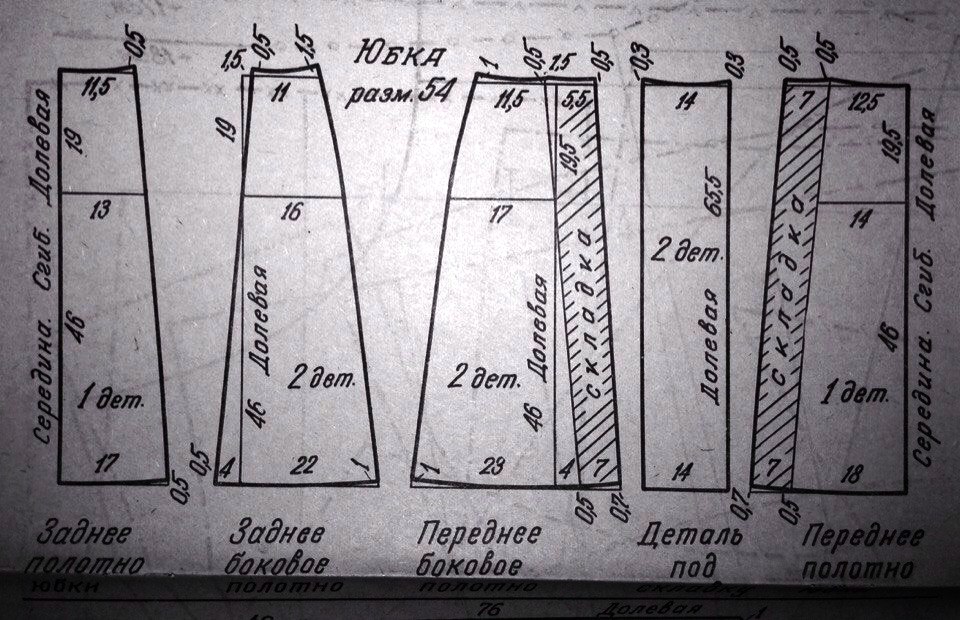 ЮБКА
разм. 54
0,5
11,5
19
13
46
1 дет.
17
0,5
Середина. Сгиб. Долевая
1,5
0,5
1,5
11
19
16
Долевая
46
2 дет.
0,5
4
22
1
1
0,5
1,5
0,5
11,5
5,5
19,5
17
Долевая
складка
2 дет.
46
1
29
4
7
0,5
0,7
0,3
0,3
14
65,5
2 дет.
Долевая
14
0,5
0,5
7
12,5
19,5
14
складка
46
1 дет.
7
18
0,7
0,5
Середина. Сгиб. Долевая
Заднее
полотно
юбки
Заднее
боковое
полотно
Переднее
боковое
полотно
Деталь
под
складку
Переднее
полотно
76
Долевая
1